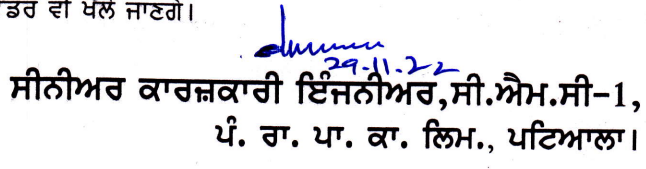 ਡਰ ਵੀ ਖੋਲੇ ਜਾਣਗੇ।
29.11.22
ਸੀਨੀਅਰ ਕਾਰਜ਼ਕਾਰੀ ਇੰਜਨੀਅਰ,ਸੀ.ਐਮ.ਸੀ-1,
ਪੰ. ਰਾ. ਪਾ. ਕਾ. ਲਿਮ., ਪਟਿਆਲਾ।